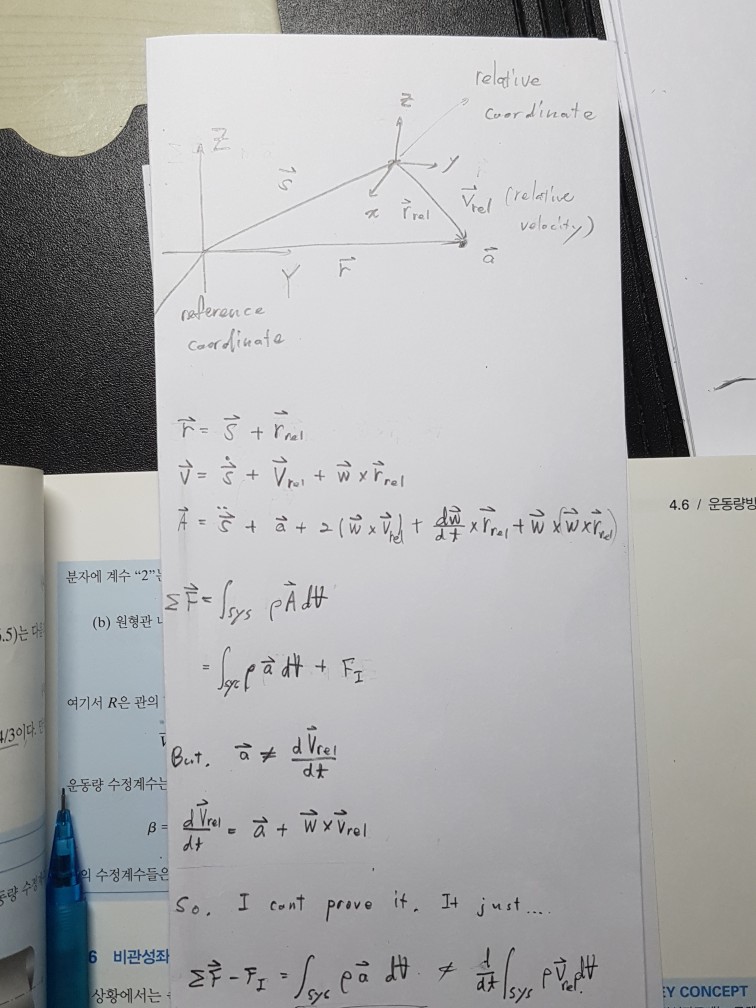 relative
coordinate
z
Z
y
x
s⃗
r⃗_rel
V⃗_rel (relative
velocity)
a⃗
Y
r⃗
reference
coordinate
r⃗ = s⃗ + r⃗_rel
V⃗ = s⃗̇ + V⃗_rel + w⃗ × r⃗_rel
A⃗ = s⃗̈ + a⃗ + 2(w⃗ × V⃗_rel) + dw⃗/dt × r⃗_rel + w⃗ × (w⃗ × r⃗_rel)
ΣF⃗ = ∫_sys ρA⃗ dV
= ∫_sys ρa⃗ dV + F_I
But, a⃗ ≠ dV⃗_rel/dt
dV⃗_rel/dt = a⃗ + w⃗ × V⃗_rel
So. I cant prove it. It just....
ΣF⃗ - F_I = ∫_sys ρa⃗ dV ≠ d/dt ∫_sys ρV⃗_rel dV
4.6 / 운동량방
분자에 계수 “2”는
(b) 원형관
.5)는 다
여기서 R은 관의
4/3이다.
운동량 수정계수는
β =
의 수정계수들은
동량 수정
6 비관성좌
상황에서는
EY CONCEPT